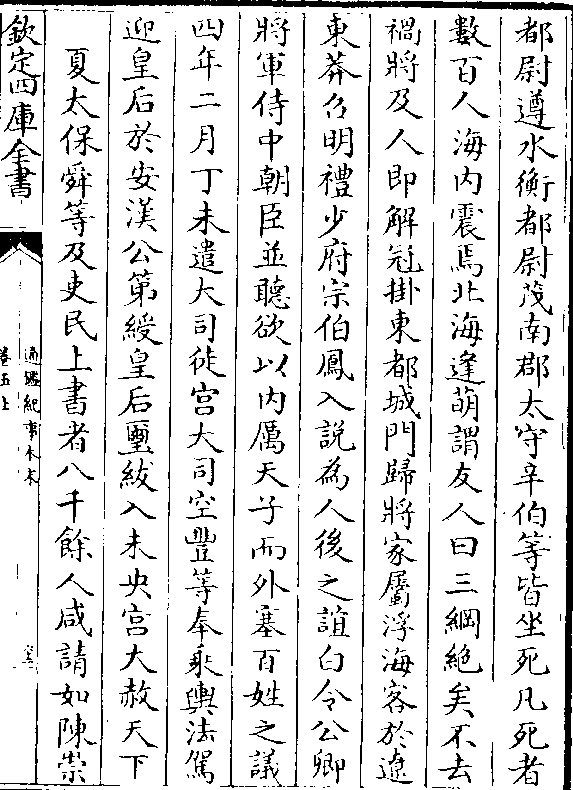 都尉遵水衡都尉茂南郡太守辛伯等皆坐死凡死者
數百人海内震焉北海逢萌謂友人曰三綱絶矣不去
禍將及人即解冠掛東都城門歸將家屬浮海客於遼
東莽召明禮少府宗伯鳳入說為人後之誼白令公卿
將軍侍中朝臣並聽欲以内厲天子而外塞百姓之議
四年二月丁未遣大司徒宫大司空豐等奉乘輿法駕
迎皇后於安漢公第綬皇后璽紱入未央宫大赦天下
夏太保舜等及吏民上書者八千餘人咸請如陳崇
欽定四庫全書
通鑑紀事本末
卷五上